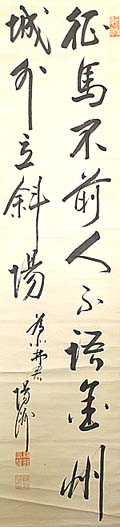 征馬不前人不語金州
城外立斜陽